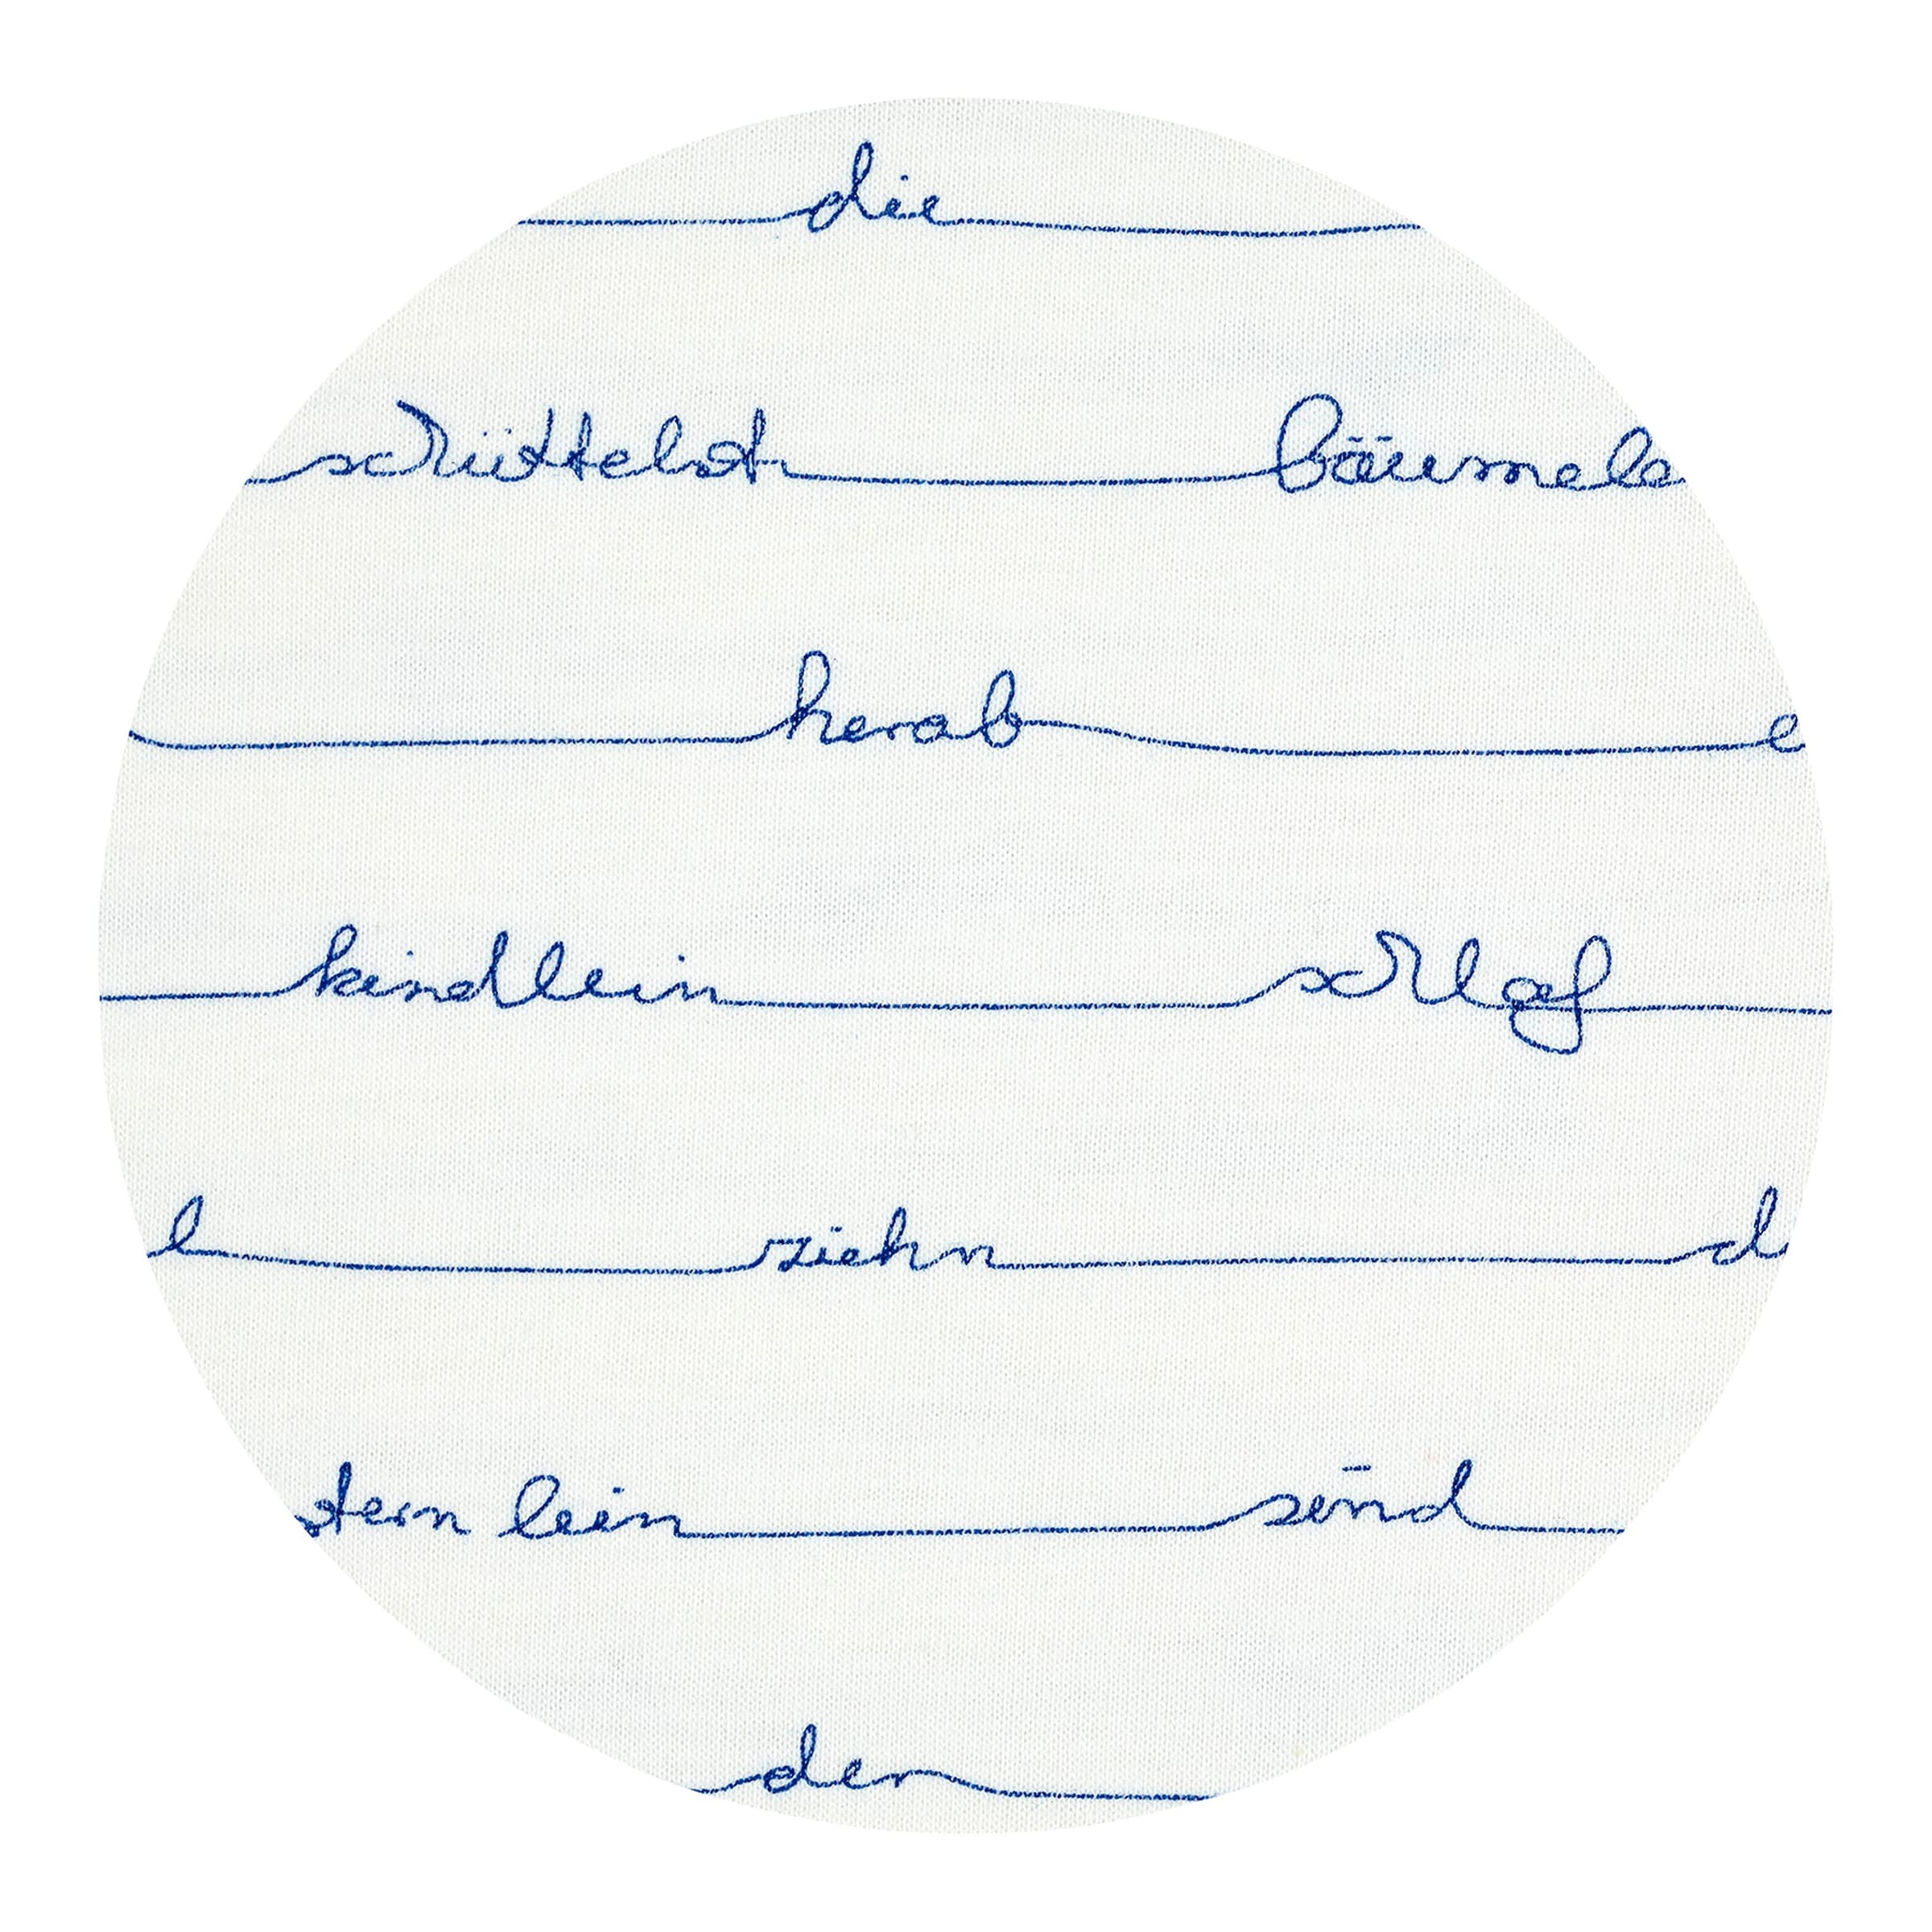 die
schüttelst bäumele
herab e
kindlein schlaf
l ziehn d
stern lein sind
der